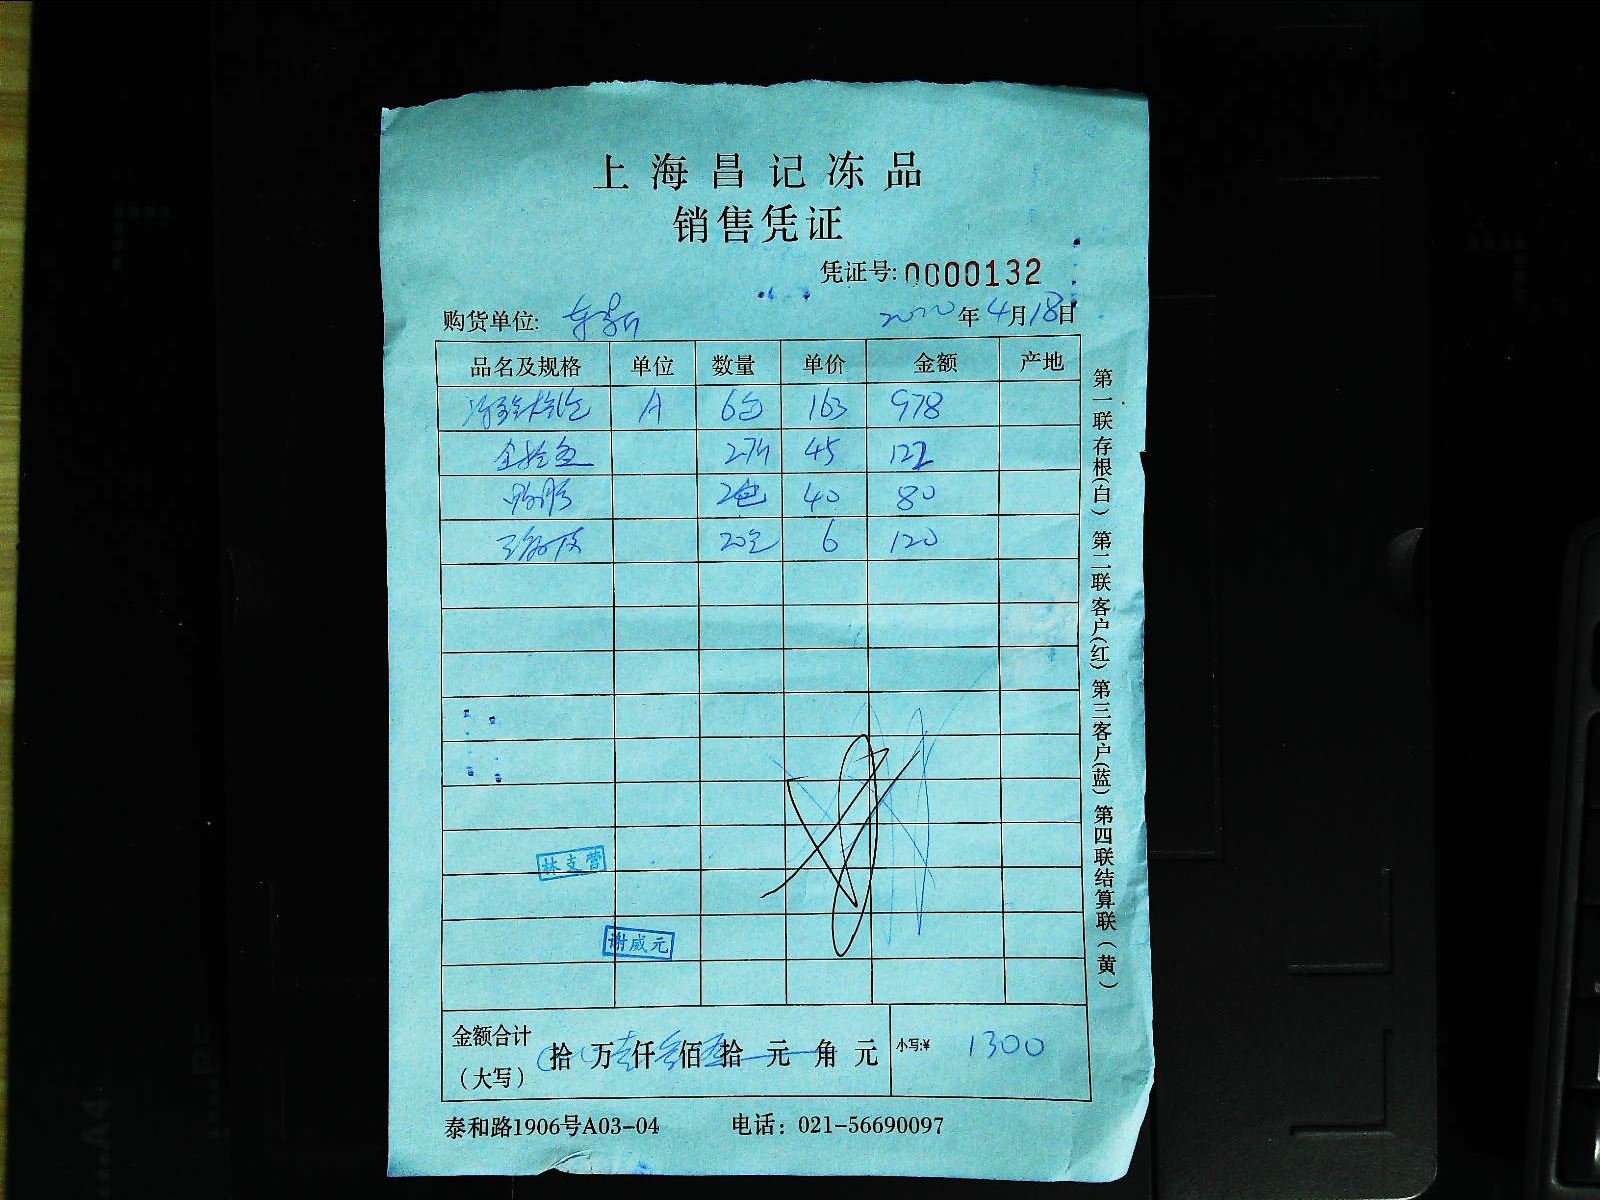 上海昌记冻品
销售凭证
凭证号:0000132
购货单位: 2020年4月18日
品名及规格 单位 数量 单价 金额 产地
A 6包 163 978
45 122
2包 40 80
20包 6 120
林支营
谢威元
金额合计
(大写) 拾 万壹仟叁佰 拾 元 角 元 小写:¥ 1300
泰和路1906号A03-04 电话：021-56690097
第一联存根(白) 第二联客户(红) 第三客户(蓝) 第四联结算联(黄)